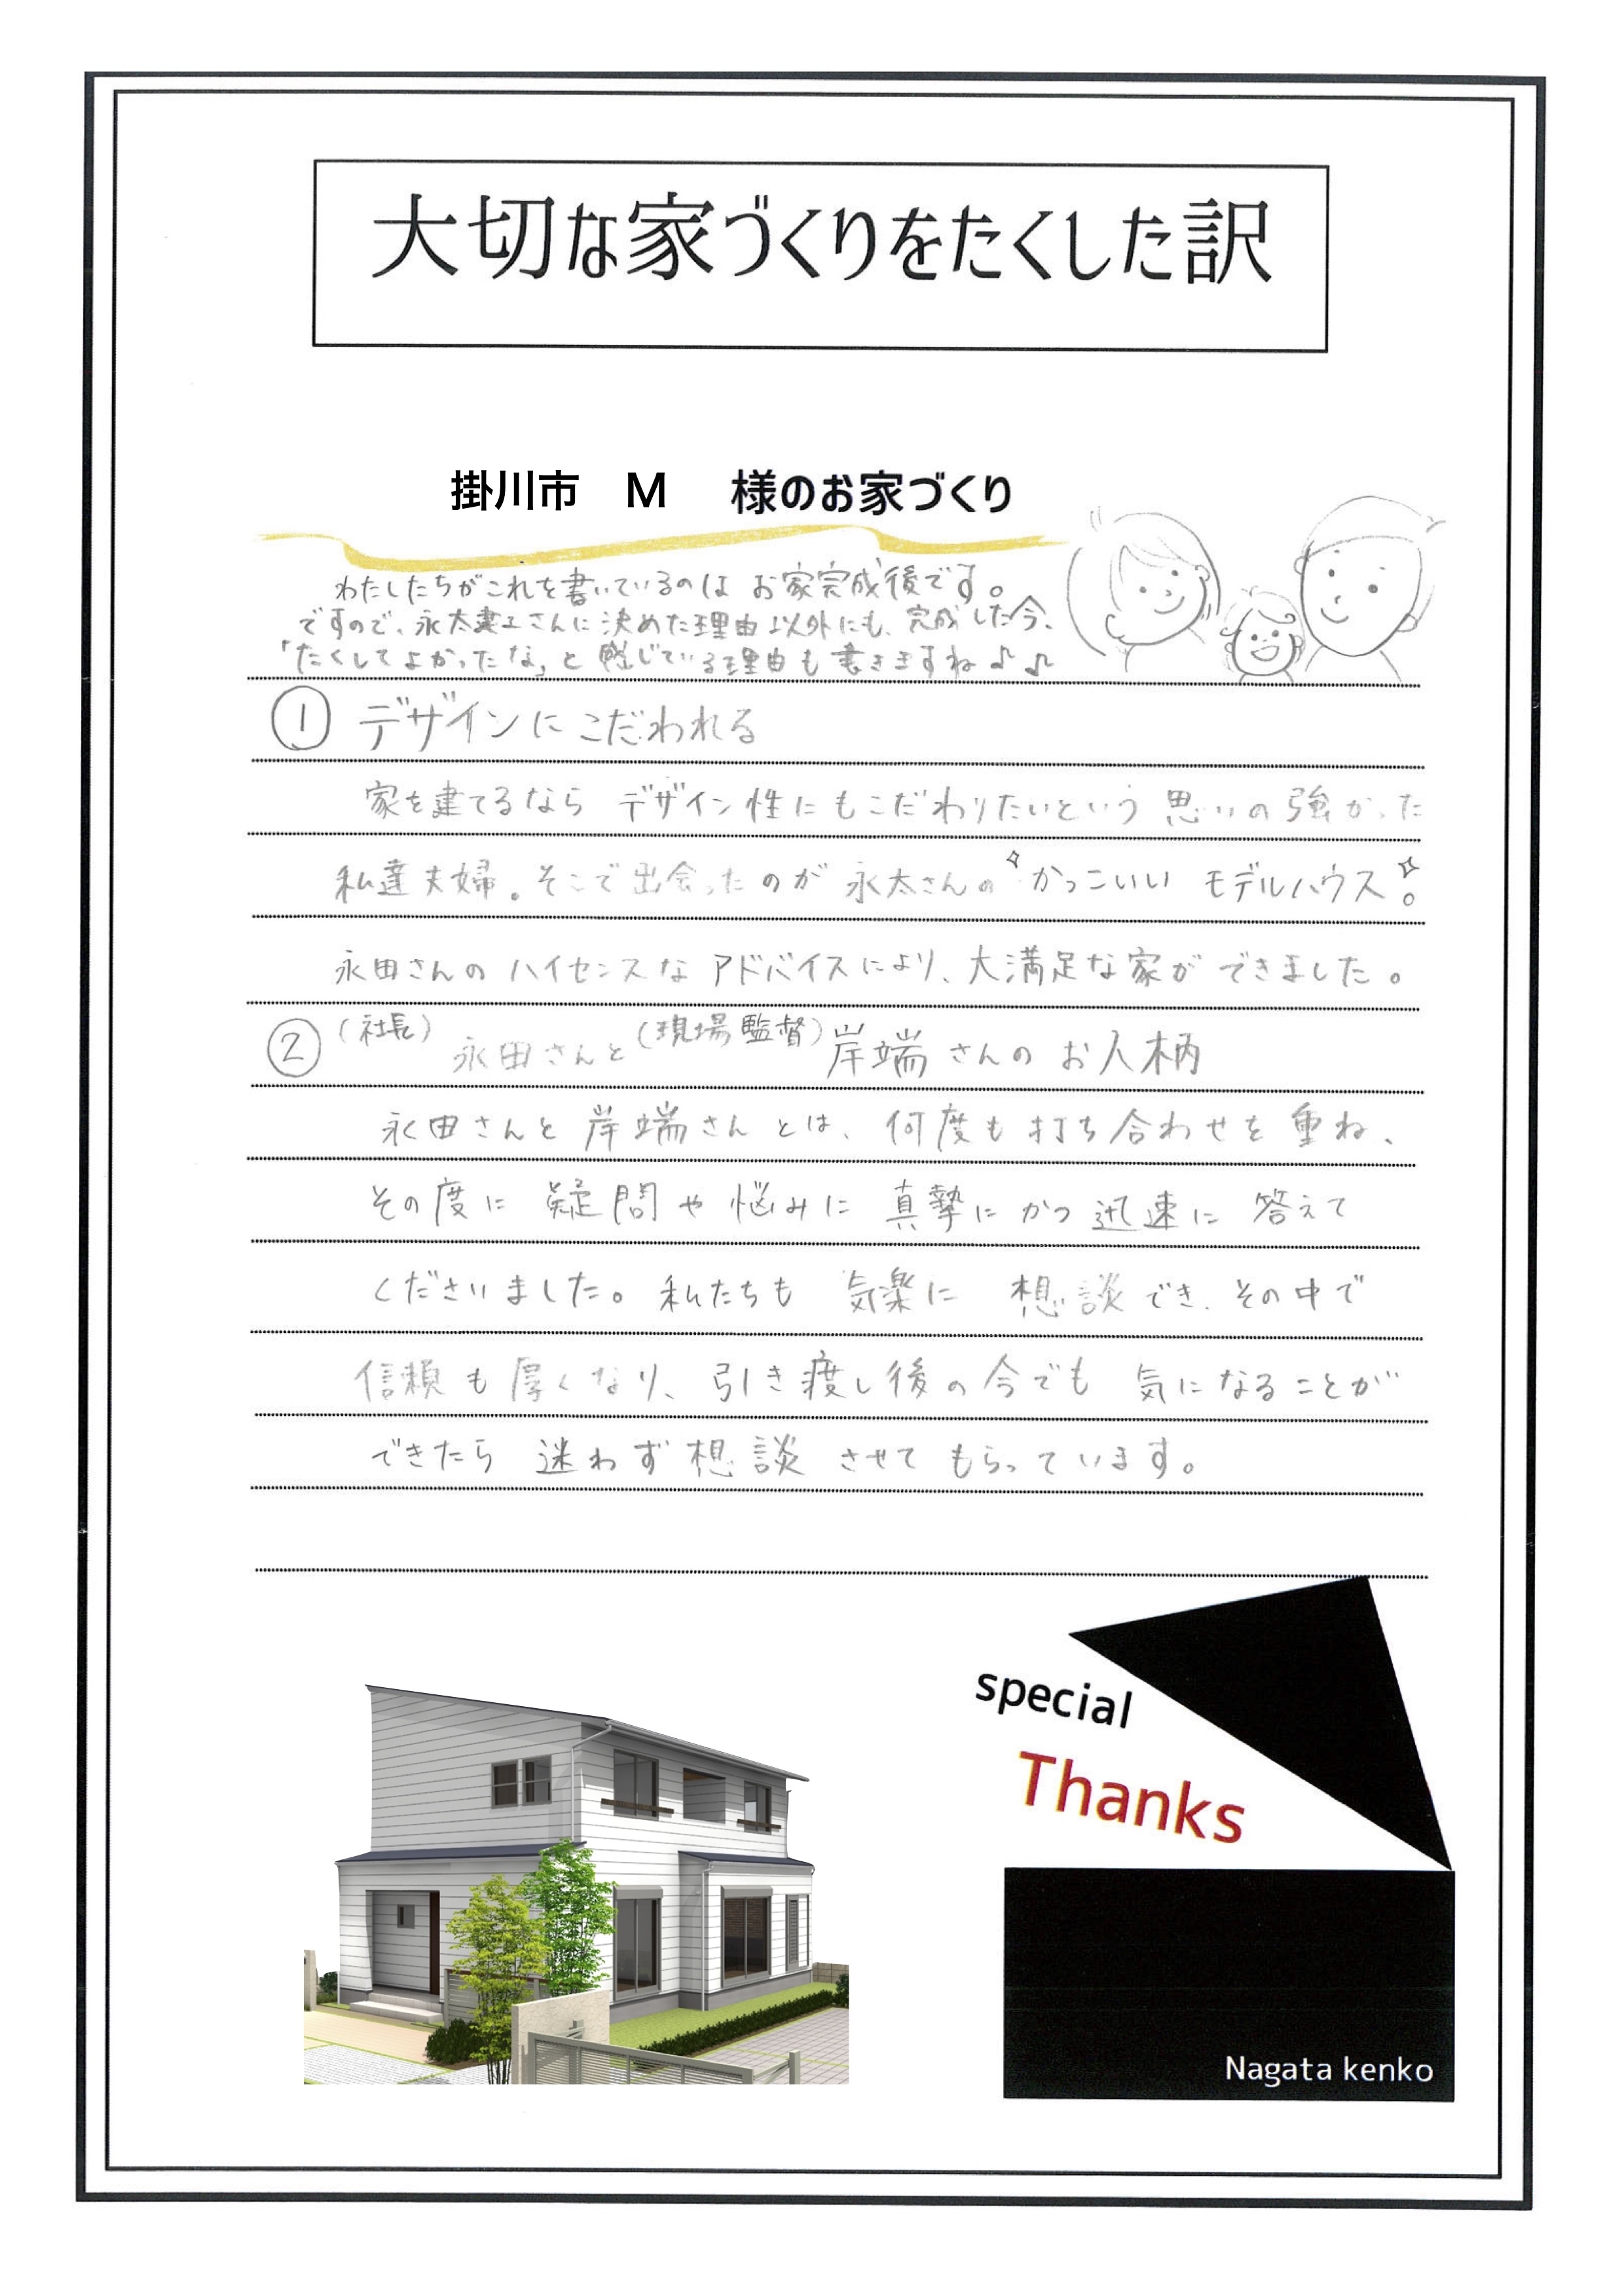 大切な家づくりをたくした訳
掛川市 M 様のお家づくり
わたしたちがこれを書いているのは お家完成後です。
ですので、永太建工さんに決めた理由以外にも、完成した今、
「たくしてよかったな」と感じている理由も書きますね♪♫
① デザインにこだわれる
家を建てるなら デザイン性にもこだわりたいという 思いの強かった
私達夫婦。そこで出会ったのが 永太さんの かっこいい モデルハウス。
永田さんの ハイセンスな アドバイスにより、大満足な家が できました。
② (社長) 永田さんと (現場監督) 岸端さんの お人柄
永田さんと 岸端さん とは、何度も打ち合わせを重ね、
その度に 疑問や悩みに 真摯に かつ 迅速に 答えて
くださいました。私たちも 気楽に 想談でき、その中で
信頼も厚くなり、引き渡し後の今でも 気になることが
できたら 迷わず 想談 させて もらっています。
special
Thanks
Nagata kenko